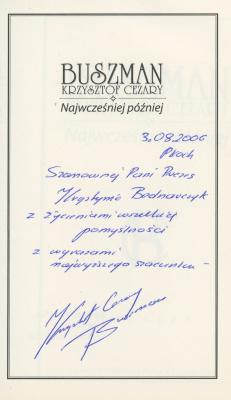 BUSZMAN
KRZYSZTOF CEZARY
Najwcześniej później
3.08.2006
Płock
Szanownej Pani Prezes
Krystynie Bednarczyk
z życzeniami wszelkiej
pomyślności
z wyrazami
najwyższego szacunku –
Krzysztof Cezary
Buszman